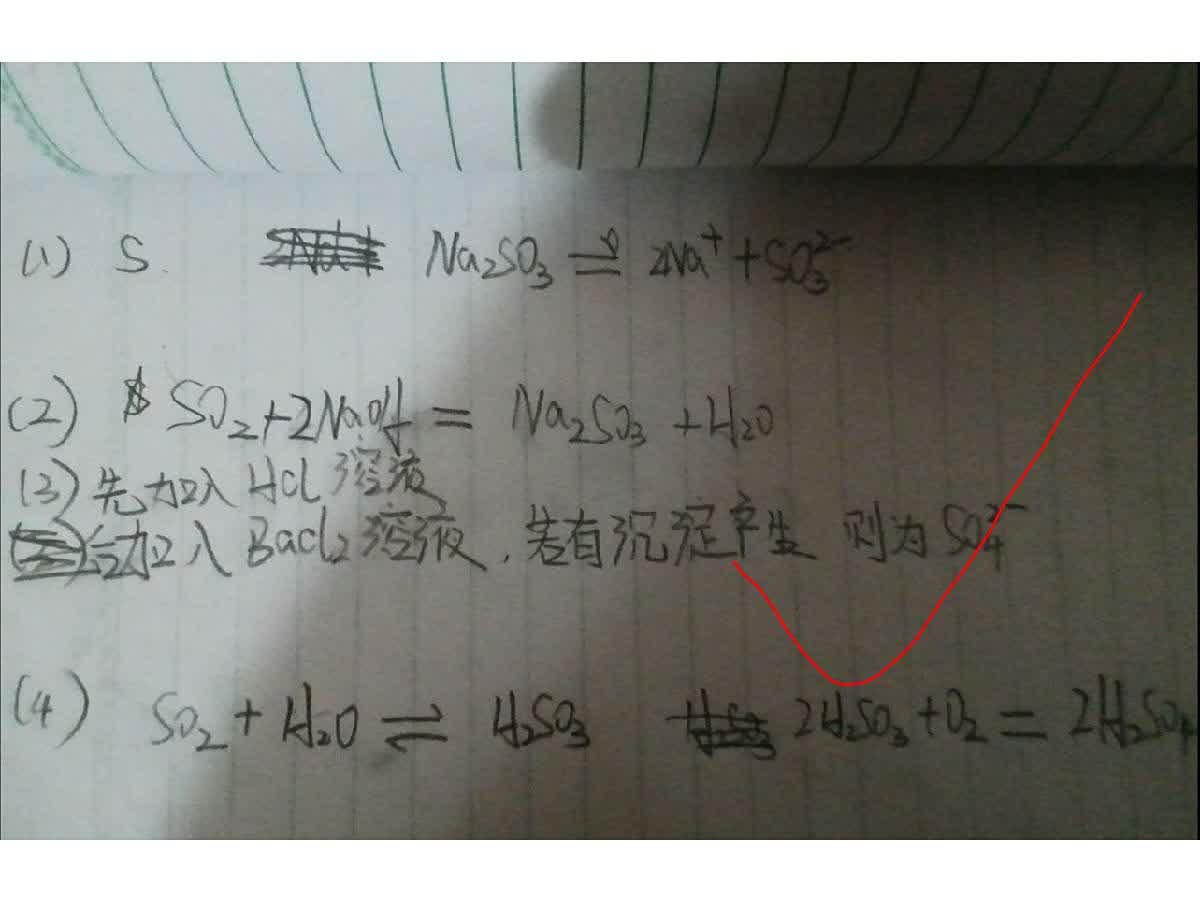 (1) S. Na₂SO₃ = 2Na⁺ + SO₃²⁻
(2) SO₂+2NaOH = Na₂SO₃ + H₂O
(3) 先加入HCl溶液
加入BaCl₂溶液,若有沉淀产生 则为SO₄²⁻
(4) SO₂ + H₂O ⇌ H₂SO₃ 2H₂SO₃+O₂ = 2H₂SO₄